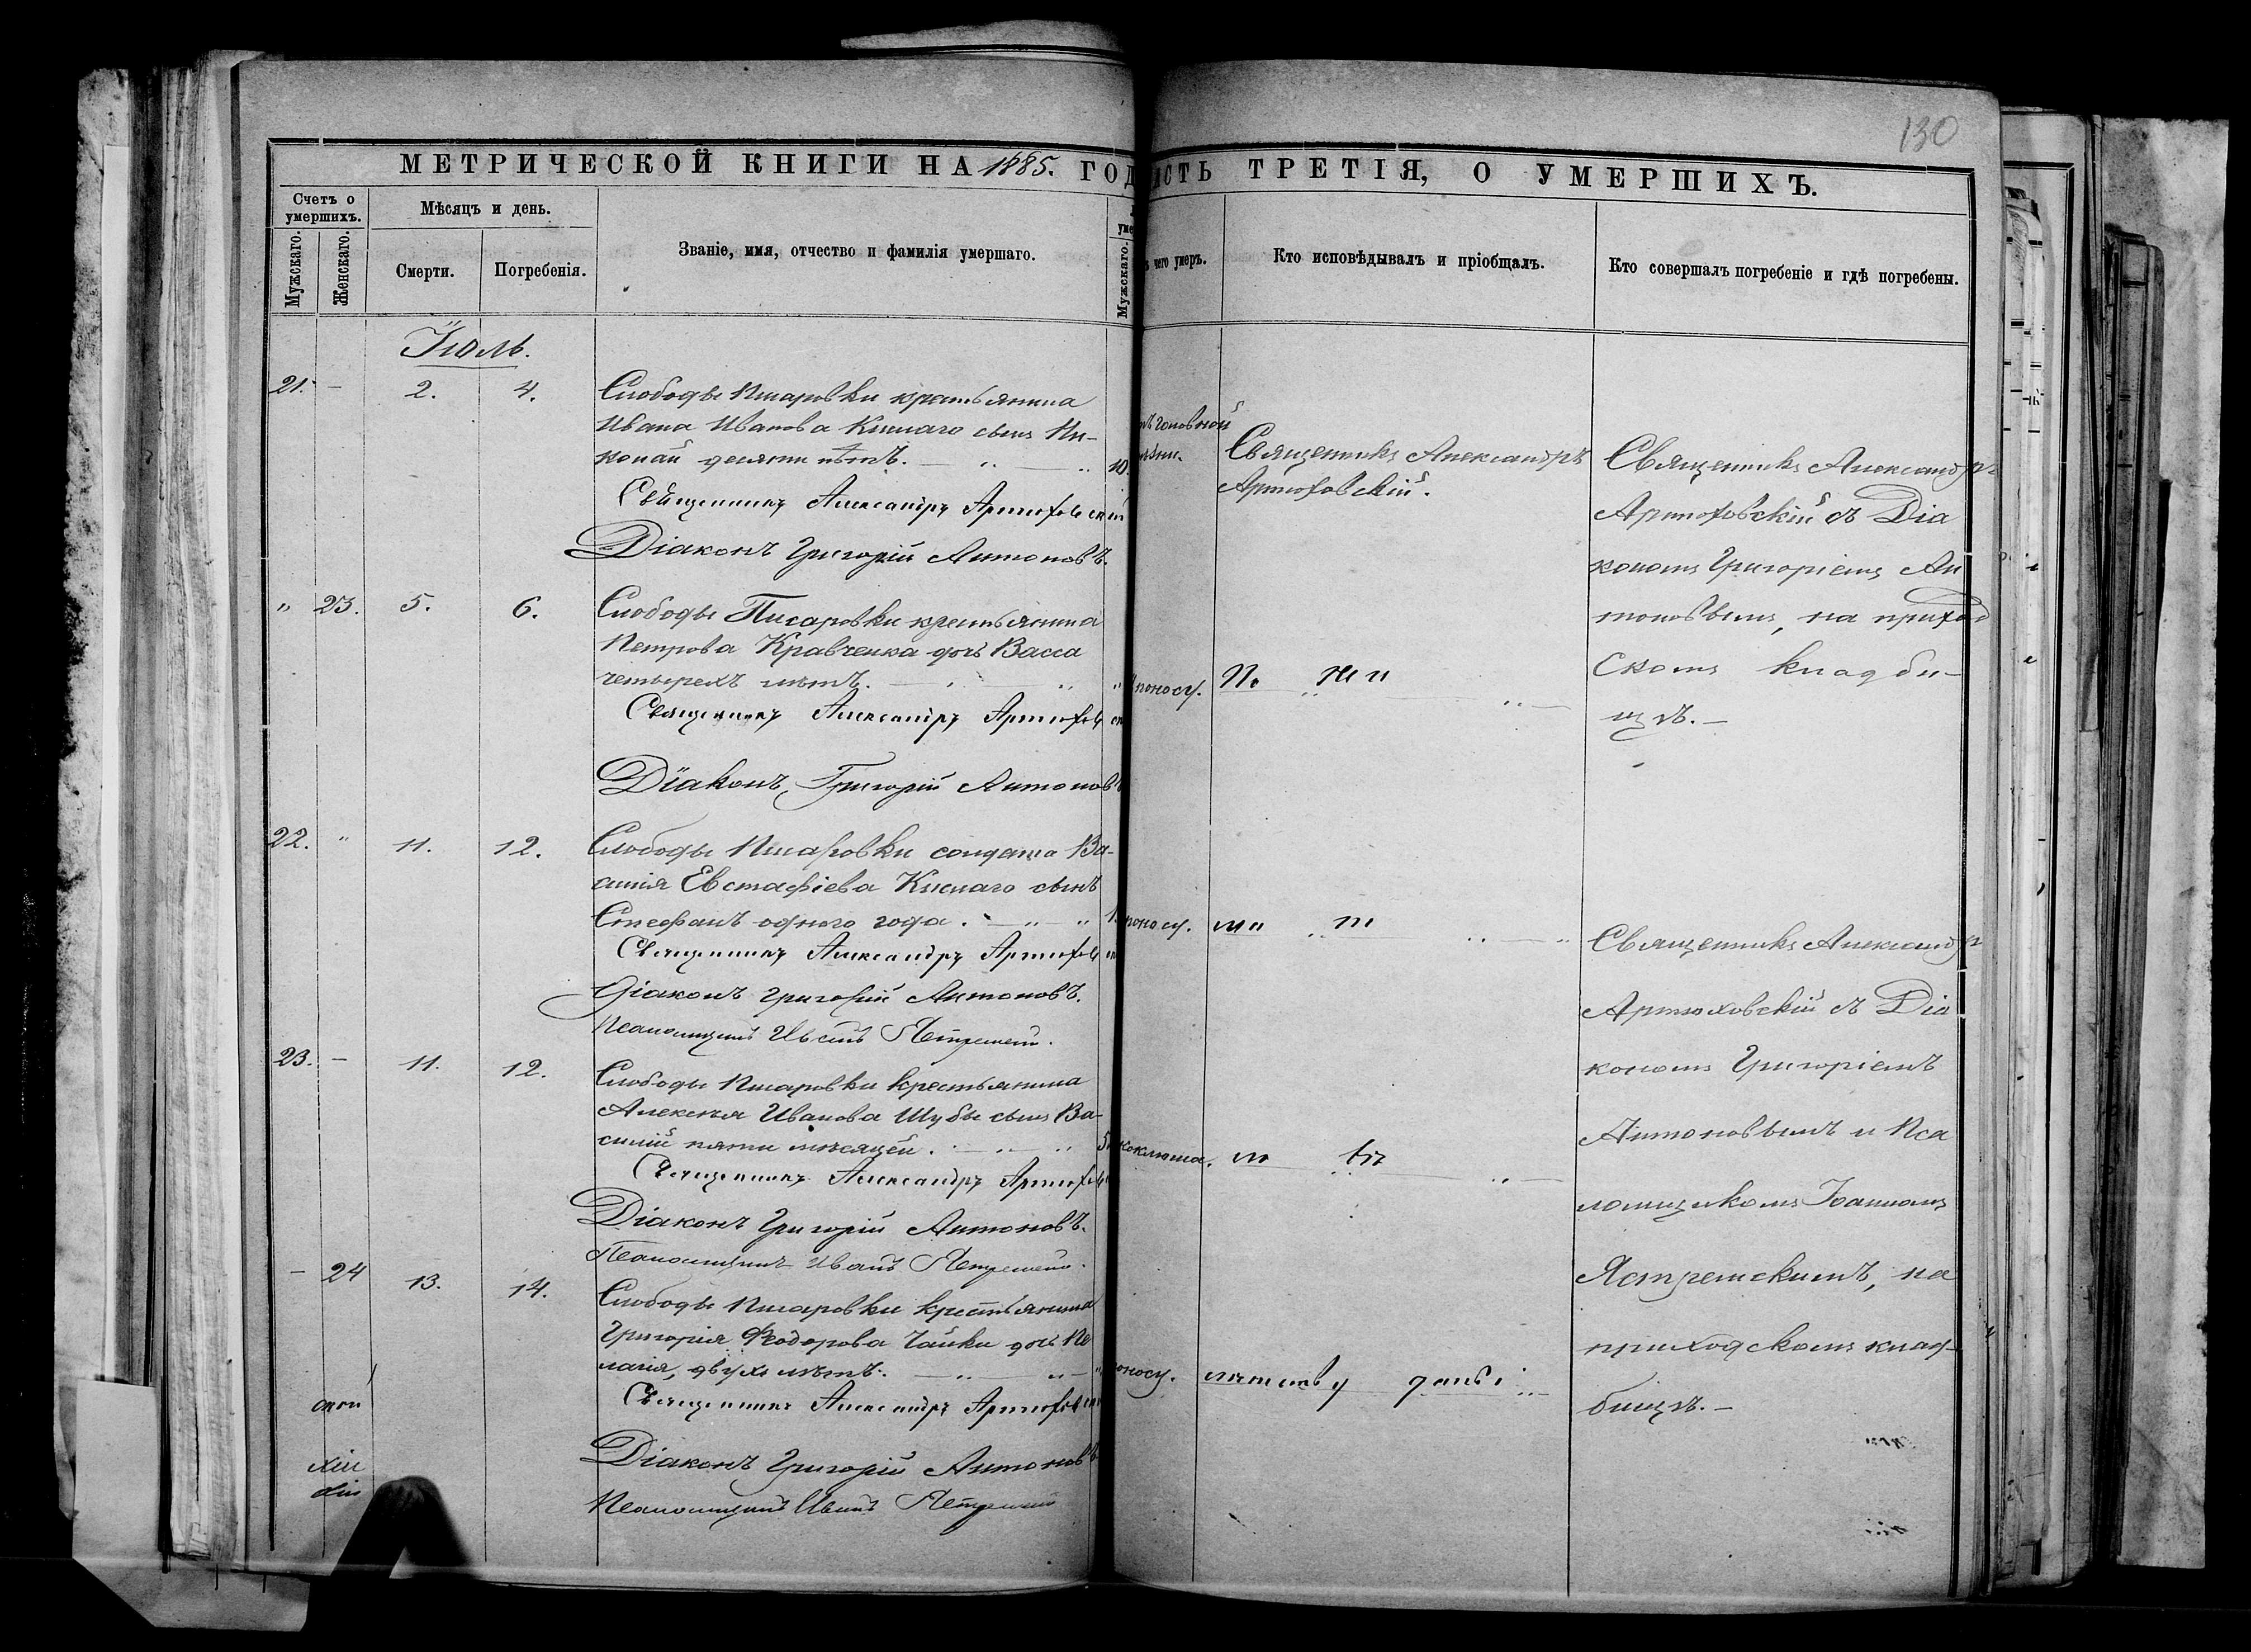 130
МЕТРИЧЕСКОЙ КНИГИ НА 1885. ГОД
ИСТЬ ТРЕТІЯ, О УМЕРШИХЪ.
Счетъ о умершихъ.
Мужскаго.
Женскаго.
Мѣсяцъ и день.
Смерти.
Погребенія.
Званіе, имя, отчество и фамилія умершаго.
уме
Мужскаго.
чего умеръ.
Кто исповѣдывалъ и пріобщалъ.
Кто совершалъ погребеніе и гдѣ погребены.
Іюль.
21. - 2. 4.
Слободы Писаровки крестьянина
Ивана Иванова Кислаго сынъ Ни-
колай десяти лѣтъ.
10
головной
Священникъ Александръ
Артюховскій.
Священникъ Александръ Артюховскій
Діаконъ Григорій Антоновъ.
Священникъ Александръ
Артюховскій съ Діа
кономъ Григоріемъ Ан
тоновымъ, на приход
скомъ кладби-
щѣ.
" 23. 5. 6.
Слободы Писаровки крестьянина
Петрова Кравченка дочь Васса
четырехъ лѣтъ.
поносу.
По
Священникъ Александръ Артюхов
Діаконъ Григорій Антоновъ
22. " 11. 12.
Слободы Писаровки солдата Ва-
силія Евстафіева Кислаго сынъ
Стефанъ одного года.
1
поносу.
Священникъ Александръ Артюхов
Діаконъ Григорій Антоновъ.
Псаломщикъ Иванъ
23. - 11. 12.
Слободы Писаровки крестьянина
Алексѣя Ивановa Шубы сынъ Ва-
силій пяти мѣсяцей.
5
коклюша.
Священникъ Александръ Артюхов
Діаконъ Григорій Антоновъ.
Псаломщикъ Иванъ
- 24 13. 14.
Слободы Писаровки крестьянина
Григорія Ѳеодорова Чайки дочь Пе
лагія, двухъ лѣтъ.
оносу.
Священникъ Александръ Артюхов
Діаконъ Григорій Антоновъ
Псаломщикъ Иванъ
Священникъ Александръ
Артюховскій съ Діа
кономъ Григоріемъ
Антоновымъ и Пса
ломщикомъ Іоанномъ
Ястремскимъ, на
приходскомъ клад-
бищѣ.